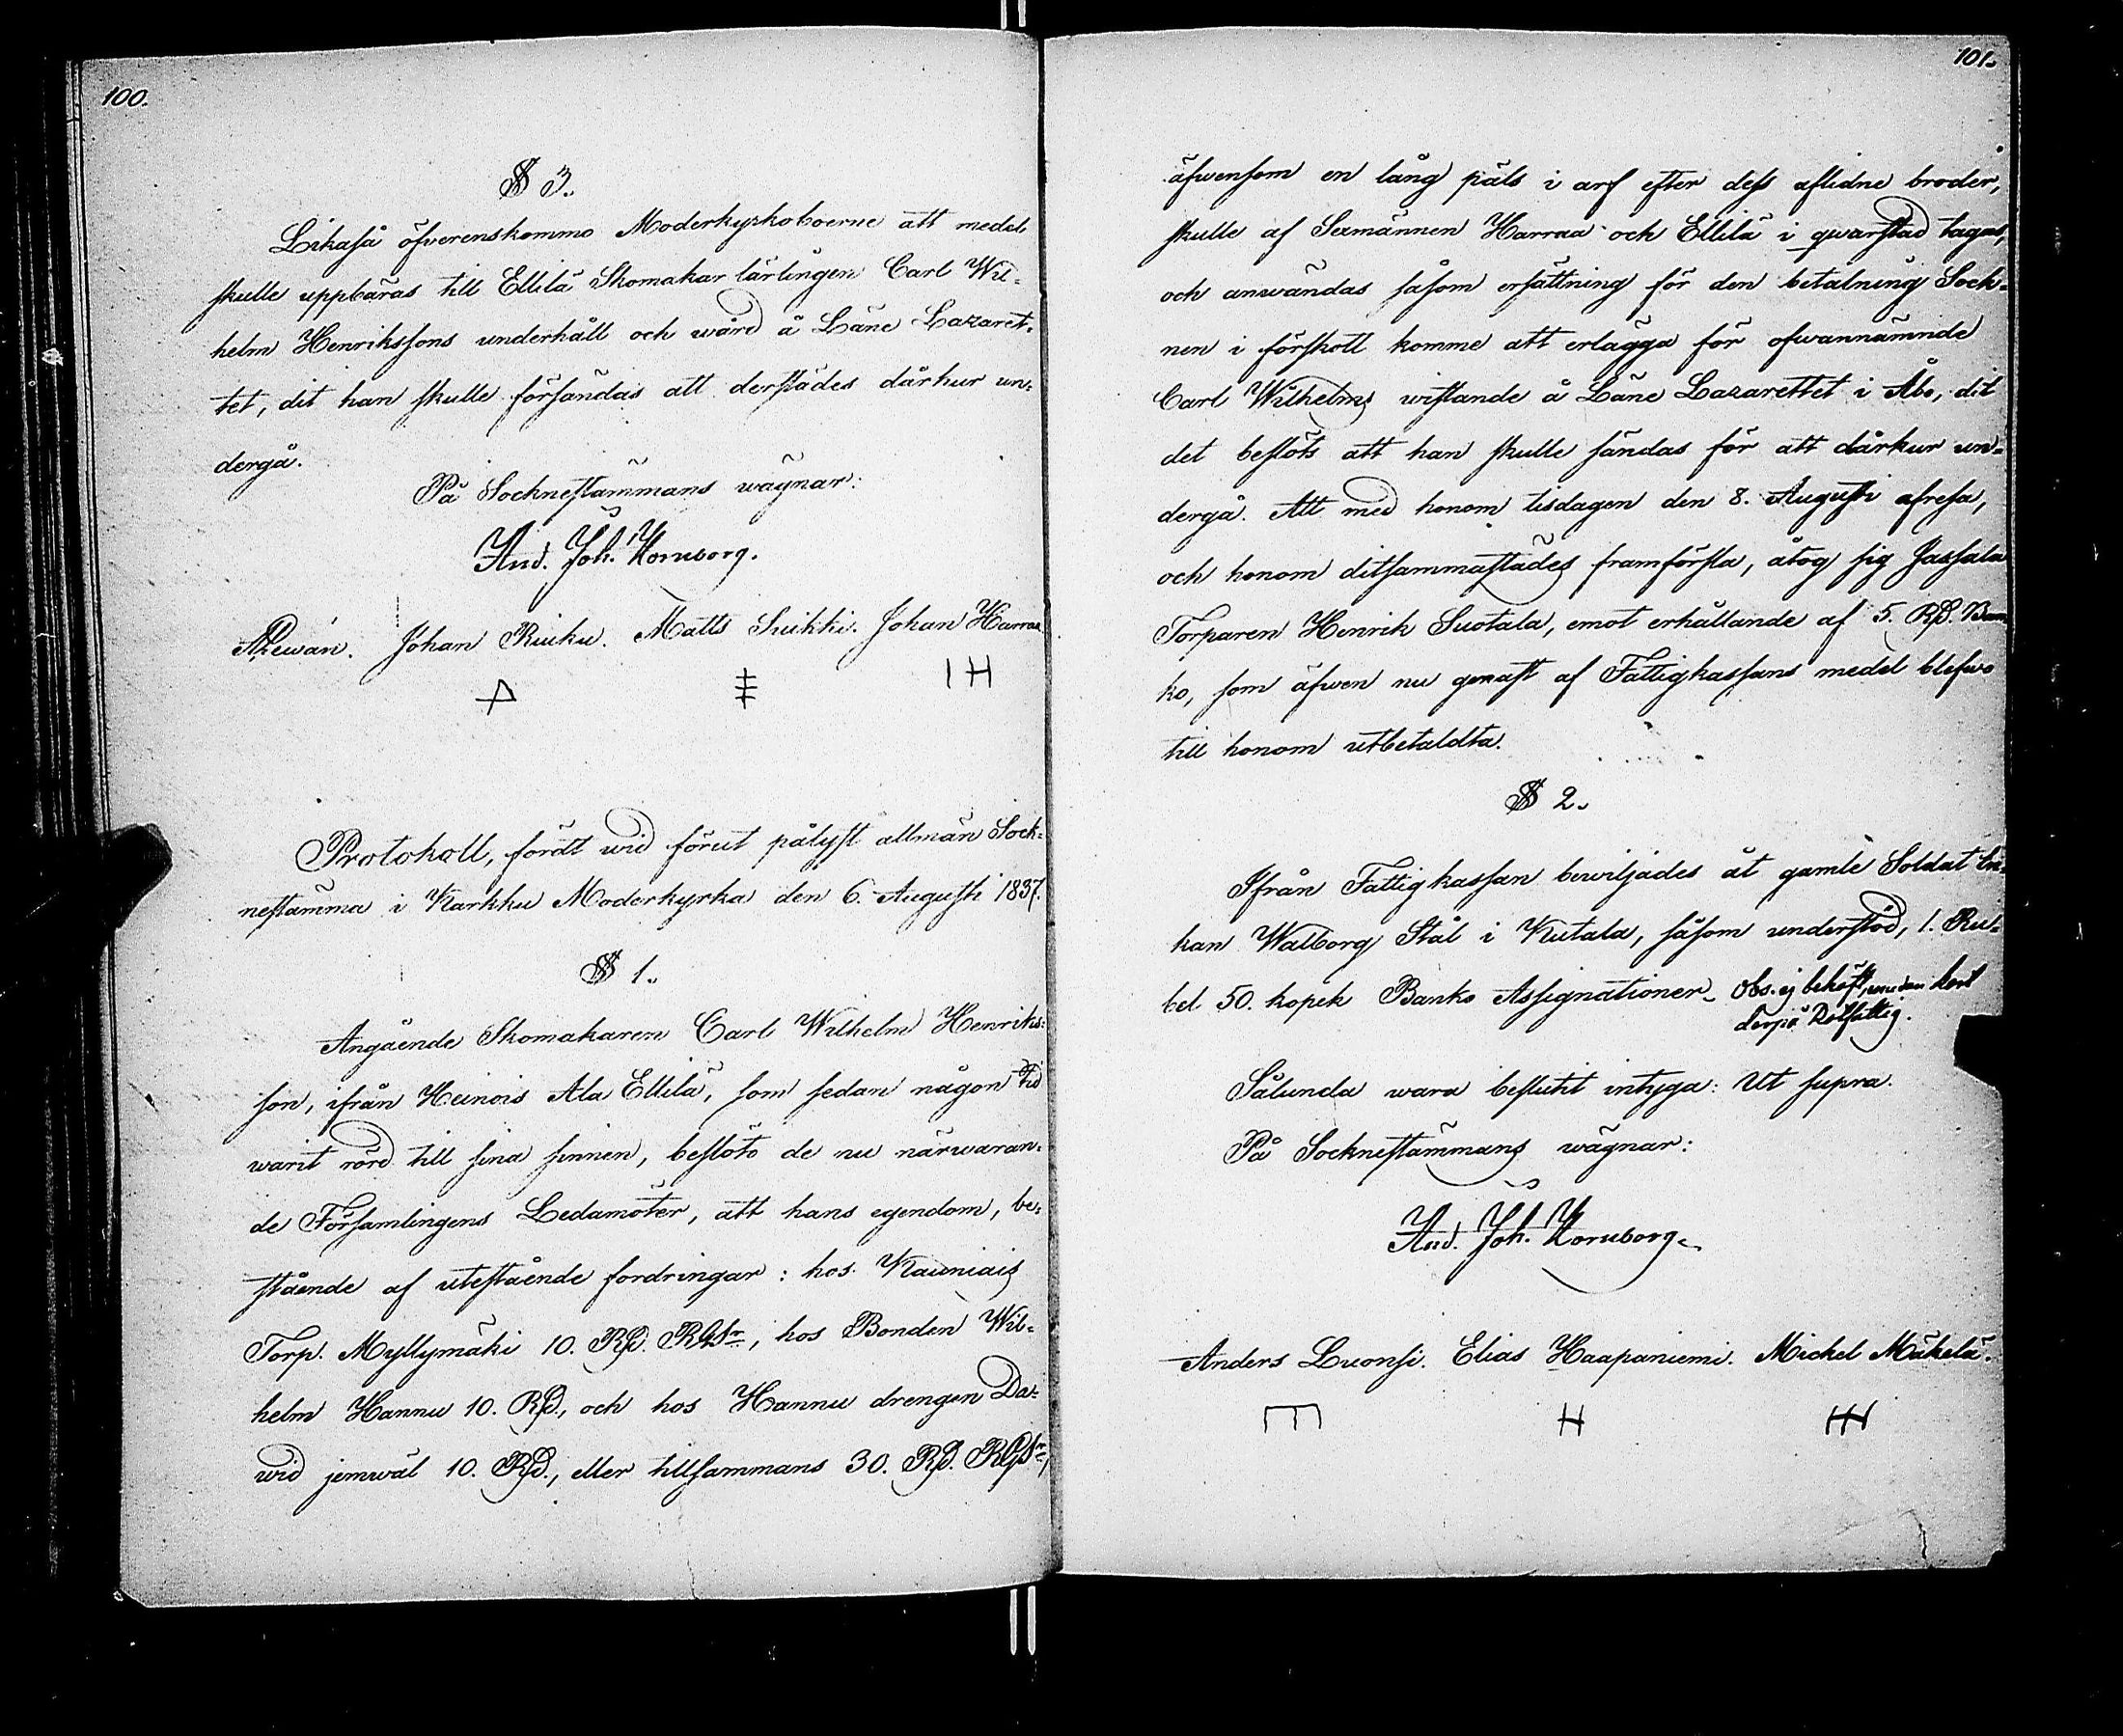 100.
§ 3.
Likaså öfverenskommo Moderkyrkoboerne att medel
skulle uppbäras till Ellilä Skomakar lärlingen Carl Wil-
helm Henrikssons underhåll och wård å Läne Lazaret-
tet, dit han skulle försändas att derstädes dårkur un-
dergå.
På Socknestämmans wägnar:
And. Joh. Kornborg.
Johan Ruiku. Matts Suikki. Johan Harraa
IH
Protokoll, fördt wid förut pålyst allmän Sock-
nestämma i Karkku Moderkyrka den 6. Augusti 1837.
§ 1.
Angående Skomakaren Carl Wilhelm Henriks-
son, ifrån Heinois Ala Ellilä, som sedan någon tid
warit rörd till sina sinnen, beslöto de nu närwaran-
de Församlingens Ledamöter, att hans egendom, be-
stående af utestående fordringar: hos Kauniais
Torp. Myllymäki 10. Rd. RGSr, hos Bonden Wil-
helm Hannu 10. Rd., och hos Hannu drengen Da-
wid jemwäl 10. Rd., eller tillsammans 30. Rd. RGSr,
101.
äfwensom en lång päls i arf efter dess aflidne broder,
skulle af Sexmännen Harraa och Ellilä i qwarstad tagas,
och anwändas såsom ersättning för den betalning Sock-
nen i förskott komme att erlägga för ofwannämnde
Carl Wilhelms wistande å Läne Lazarettet i Åbo, dit
det beslöts att han skulle sändas för att dårkur un-
dergå. Att med honom tisdagen den 8. Augusti afresa,
och honom ditsammastädes framförsla, åtog sig Jassala
Torparen Henrik Suotala, emot erhållande af 5. Rd. Ban-
ko, som äfwen nu genast af Fattigkassans medel blefwo
till honom utbetaldta.
§ 2.
Ifrån Fattigkassan bewiljades åt gamle Soldat En-
kan Walborg Stål i Kutala, såsom understöd, 1. Ru-
bel 50. kopek Banko Assignationer. Obs. ej behöft, undan kort
derpå Rotfattig.
Sålunda wara beslutit intyga: Ut supra.
På Socknestämmans wägnar:
And. Joh. Kornborg.
Anders Luonsi. Elias Haapaniemi. Michel Mäkelä.